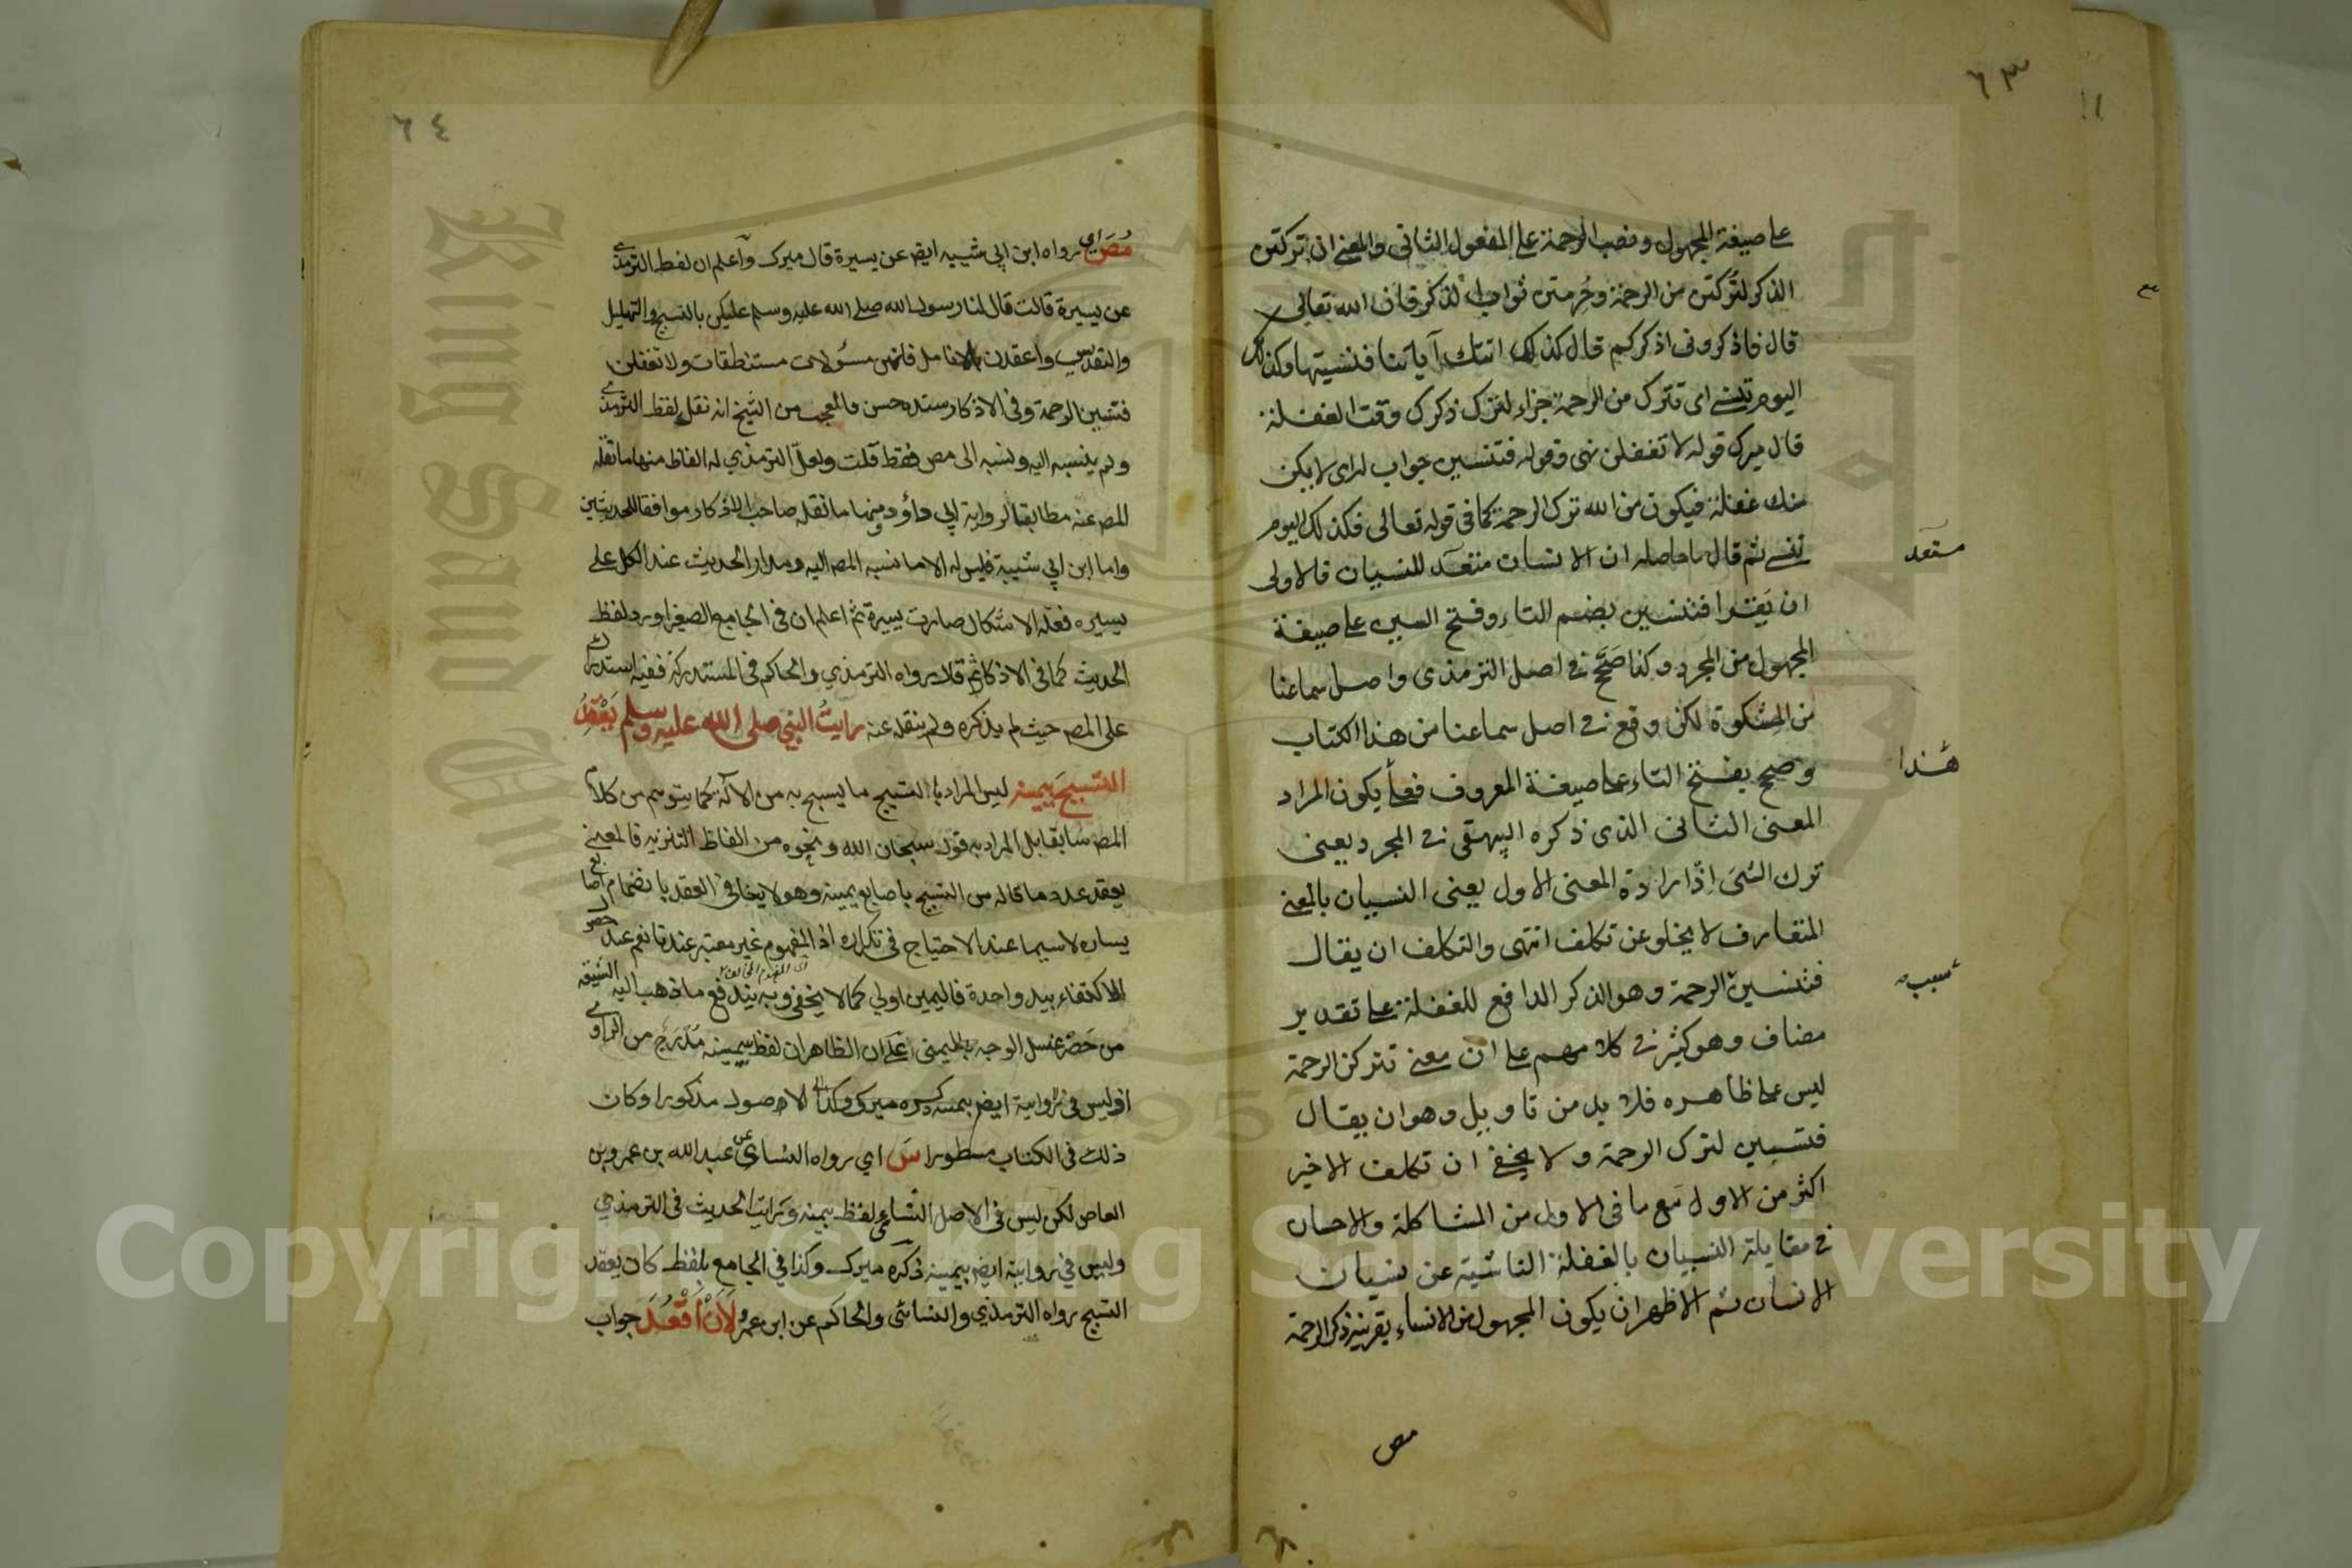 ٦٣
على صيغة المجهول ونصب الرحمة على المفعول الثاني والمعنى ان تركتن
الذكر لتُركتن من الرحمة وحُرمتن ثواب الذكر فان الله تعالى
قال فاذكروني اذكركم قال كذلك اتتك آياتنا فنسيتها وكذلك
اليوم تنسى اى تترك من الرحمة جزاء لترك ذكرك وقت الغفلة
قال ميرك قوله لا تغفلن نهى وقوله فتنسين جواب له اى لا يكن
منك غفلة فيكون من الله ترك الرحمة كما في قوله تعالى فكذلك اليوم
تنسى ثم قال ما حاصله ان الانسان للنسيان فالاولى
مستعد
ان يقرا فتنسين بضم التاء وفتح السين على صيغة
المجهول من المجرد وكذا صَحَّ في اصل الترمذى واصل سماعنا
من المشكوة لكن وقع في اصل سماعنا من هذا الكتاب
وصح بفتح التاء على صيغة المعروف يكون المراد
هذا
المعنى الثانى الذى ذكره البيهقى في المجرد يعنى
ترك الشئ اذ ارادة المعنى الاول يعنى النسيان بالمعنى
المتعارف لا يخلو عن تكلف انتهى والتكلف ان يقال
فتنسين الرحمة وهو الذكر الدافع للغفلة على تقدير
سبب
مضاف وهو كثير في كلامهم على ان معنى تتركن الرحمة
ليس على ظاهره فلا بد من تاويل وهو ان يقال
فتنسين لترك الرحمة ولا يخفى ان تكلف الاخير
اكثر من الاول مع ما في الاول من المشاكلة والاحسان
في مقابلة النسيان بالغفلة الناشية عن نسيان
الانسان ثم الاظهر ان يكون المجهول من الانساء بقرينة ذكر الرحمة
مص
٦٤
مُصَ اى رواه ابن ابي شيبه ايضا عن يسيرة قال ميرك واعلم ان لفظ الترمذي
عن يسيرة قالت قال لنا رسول الله صلى الله عليه وسلم عليكن بالتسبيح والتهليل
والتقديس واعقدن بالانامل فانهن مسؤلات مستنطقات ولا تغفلن
فتنسين الرحمة وفي الاذكار سنده حسن والعجب من الشيخ انه نقل لفظ الترمذي
ولم ينسبه اليه ونسبه الى مص فقط قلت ولعل الترمذي له الفاظ منها ما نقله
المص عنه مطابقا لرواية ابي داؤد ومنها ما نقله صاحب الاذكار موافقا للحديثين
واما ابن ابي شيبة فليس له الا ما نسبه المص اليه ومدار الحديث عند الكل على
يسيره فعله الاشكال صارت يسيرة ثم اعلم ان في الجامع الصغير اورد لفظ
الحديث كما في الاذكار ثم قال رواه الترمذي والحاكم في المستدركه ففيه استدراك
على المص حيث لم يذكره ولم ينقله عنه رايتُ النبي صلى الله عليه وسلم يَعْقِدُ
التسبيحَ بيمينه ليس المراد بالتسبيح ما يسبح به من الآلة كما يتوهم من كلام
المص سابقا بل المراد به قول سبحان الله ونحوه من الفاظ التنزيه فالمعنى
يعقد عدد ما قاله من التسبيح باصابع يمينه وهو لا ينافي العقد بانضمام اصابع
يساره لا سيما عند الاحتياج في تكراره اذ المفهوم غير معتبر عندنا نعم عند
اى المفهوم المخالف
الاكتفاء بيد واحدة فاليمين اولى كما لا يخفى وبه يندفع ما ذهب اليه الشيعة
من حَصْر غسل الوجه باليمنى على ان الظاهر ان لفظ بيمينه مُدْرَج من الراوي
اذ ليس في رواية ايضا بيمينه ذكره ميرك وكذا الاصول مذكورا وكان
ذلك في الكتاب مسطورا سَ اي رواه النسائى عن عبد الله بن عمرو بن
العاص لكن ليس في الاصل لفظ بيمينه ورايت الحديث في الترمذي
وليس في رواية ايضا بيمينه ذكره ميرك وكذا في الجامع بلفظ كان يعقد
التسبيح رواه الترمذي والنسائى والحاكم عن ابن عمرو لَأَنْ أَقْعُدَ جواب
King Saud University
1957
Copyright © King Saud University